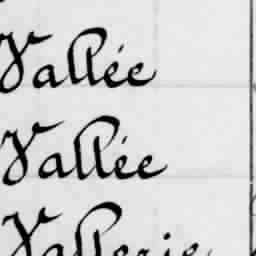 Vallée
Vallée
Vallerie